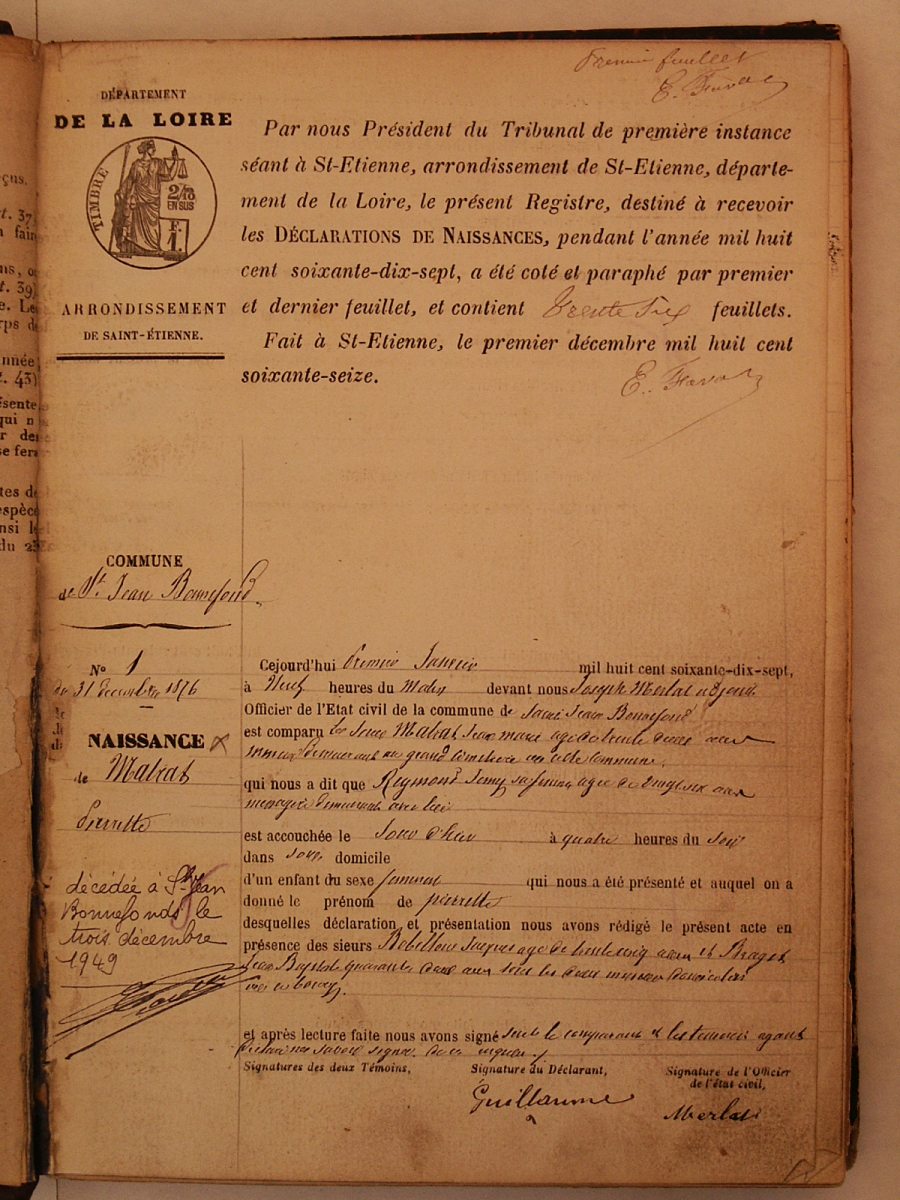 Premier feuillet
E. Favar
DÉPARTEMENT
DE LA LOIRE
TIMBRE
2/10
EN SUS
ARRONDISSEMENT
DE SAINT-ÉTIENNE.
Par nous Président du Tribunal de première instance
séant à St-Etienne, arrondissement de St-Etienne, départe-
ment de la Loire, le présent Registre, destiné à recevoir
les DÉCLARATIONS DE NAISSANCES, pendant l'année mil huit
cent soixante-dix-sept, a été coté et paraphé par premier
et dernier feuillet, et contient Trente Six feuillets.
Fait à St-Etienne, le premier décembre mil huit cent
soixante-seize.
COMMUNE
de St. Jean Bonnefond
No 1
du 31 décembre 1876
NAISSANCE
de Malrat
Pierrette
décédée à St Jean
Bonnefonds le
trois décembre
1949
Cejourd'hui Premier Janvier mil huit cent soixante-dix-sept,
à Neuf heures du Matin devant nous Joseph Merlat adjoint
Officier de l'Etat civil de la commune de Saint Jean Bonnefond
est comparu le sieur Malrat Jean marie agé de trente deux ans
mineur Demeurant au grand Cimetière en cette Commune.
qui nous a dit que Reymond Jenny sa femme agée de vingt six ans
ménagère demeurant avec lui
est accouchée le Jour d'hier à quatre heures du Soir
dans son domicile
d'un enfant du sexe feminin qui nous a été présenté et auquel on a
donné le prénom de pierrette
desquelles déclaration et présentation nous avons rédigé le présent acte en
présence des sieurs agé de trente cinq ans et
Jean Baptiste quarante deux ans tous les deux mineurs domiciliés
en ce bourg.
et après lecture faite nous avons signé seul le comparant et les temoins ayant
déclaré ne savoir signer de ce requis
Signatures des deux Témoins,
Signature du Déclarant,
Signature de l'Officier
de l'état civil,
Guillaume
Merlat